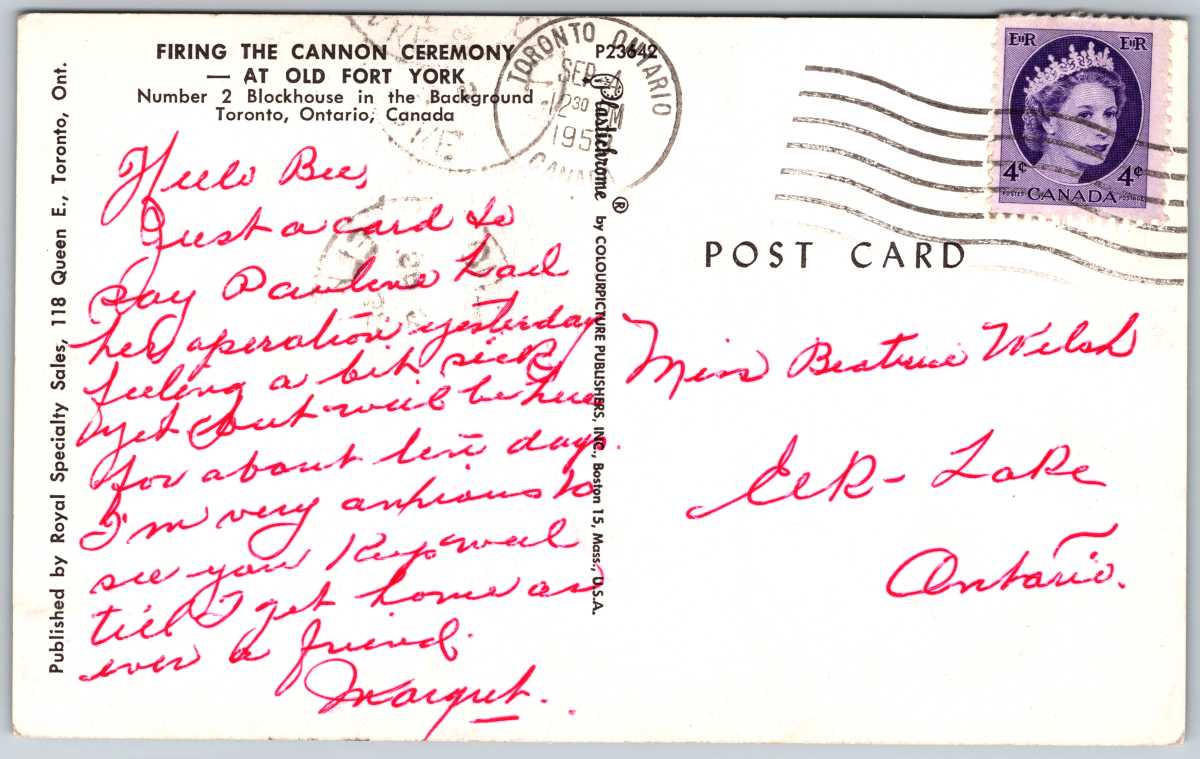 FIRING THE CANNON CEREMONY
— AT OLD FORT YORK
Number 2 Blockhouse in the Background
Toronto, Ontario, Canada
P23642
TORONTO ONTARIO
SEP 4
12 30 PM
195
CANADA
EIIR EIIR
4¢ 4¢
POSTES CANADA POSTAGE
POST CARD
Hello Bee,
Just a card to
say Pauline had
her operation yesterday
feeling a bit sick
yet but will be here
for about ten days.
I'm very anxious to
see you Keep well
till I get home as
ever a friend.
Margret.
Miss Beatrice Welsh
Elk-Lake
Ontario.
Published by Royal Specialty Sales, 118 Queen E., Toronto, Ont.
Plastichrome ® by COLOURPICTURE PUBLISHERS, INC., Boston 15, Mass., U.S.A.